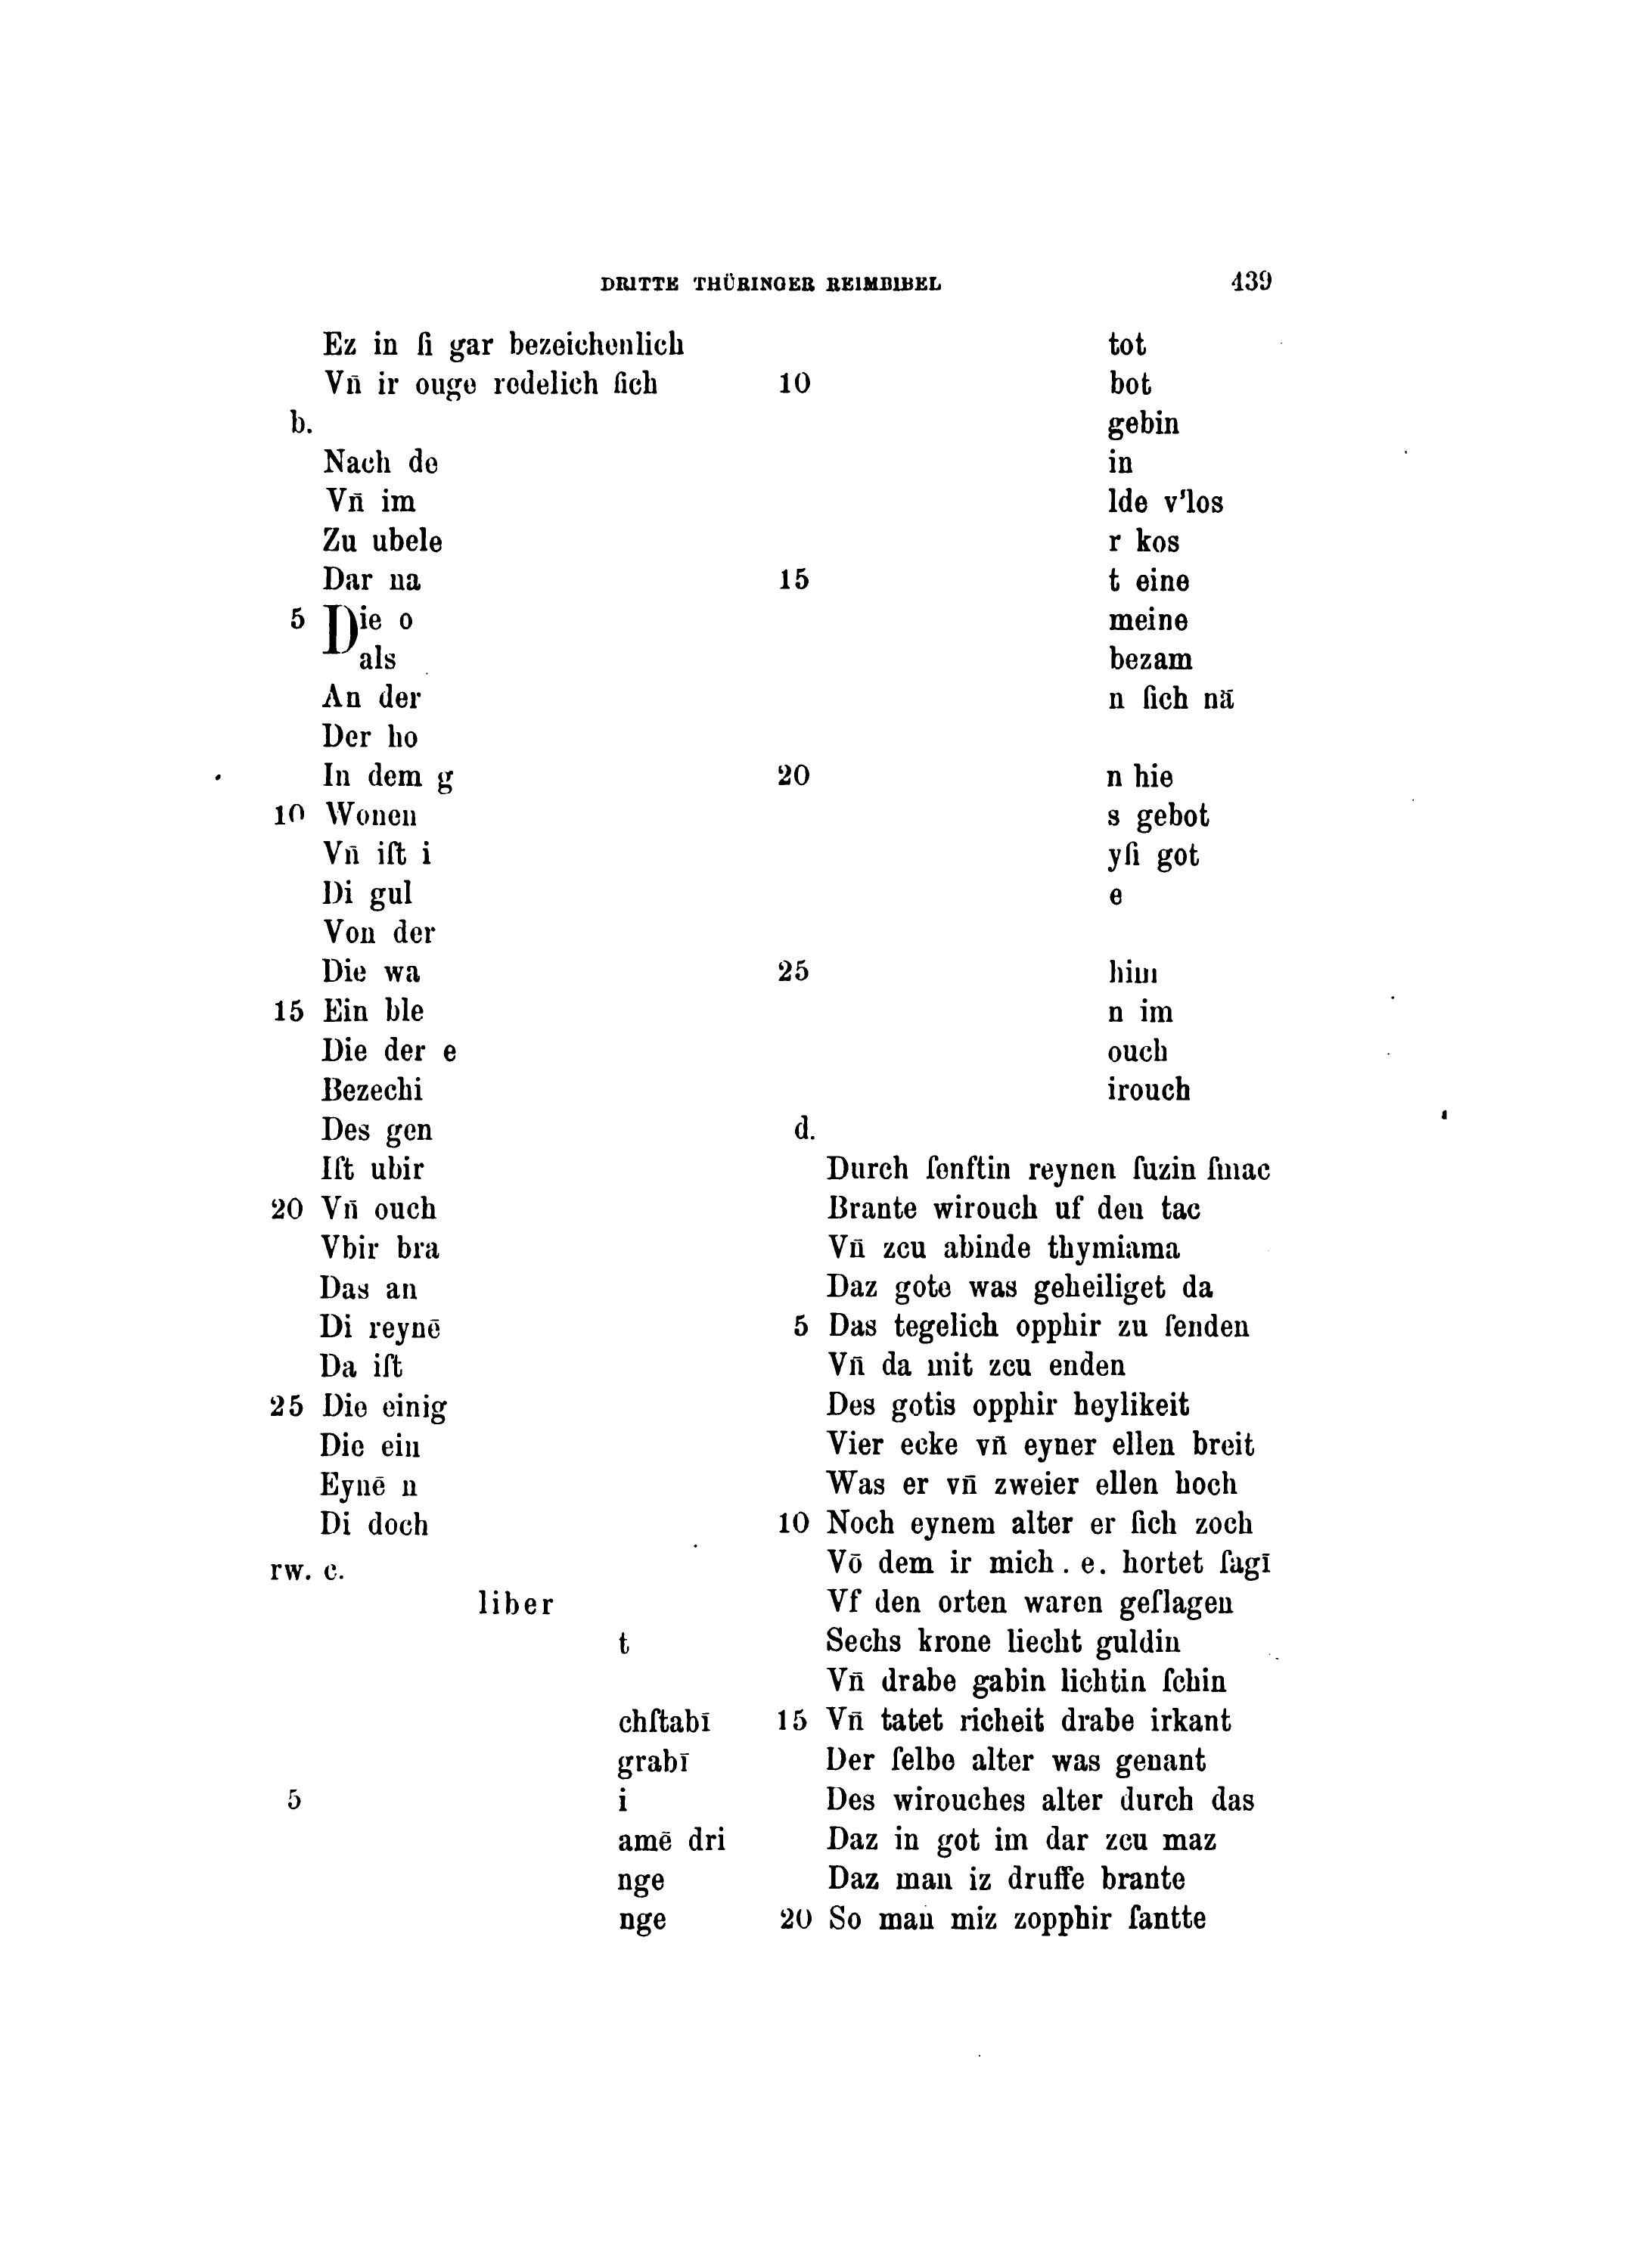 DRITTE THÜRINGER REIMBIBEL 439
Ez in ſi gar bezeichenlich
Vn̄ ir ouge redelich ſich
b.
Nach de
Vn̄ im
Zu ubele
Dar na
5 Die o
als
An der
Der ho
In dem g
10 Wonen
Vn̄ iſt i
Di gul
Von der
Die wa
15 Ein ble
Die der e
Bezechi
Des gen
Iſt ubir
20 Vn̄ ouch
Vbir bra
Das an
Di reynē
Da iſt
25 Die einig
Die ein
Eynē n
Di doch
rw. c.
liber
t
chſtabī
grabī
5 i
amē dri
nge
nge
tot
10 bot
gebin
in
lde v'los
r kos
15 t eine
meine
bezam
n ſich nā
20 n hie
s gebot
yſi got
e
25 him
n im
ouch
irouch
d.
Durch ſenftin reynen ſuzin ſmac
Brante wirouch uf den tac
Vn̄ zcu abinde thymiama
Daz gote was geheiliget da
5 Das tegelich opphir zu ſenden
Vn̄ da mit zcu enden
Des gotis opphir heylikeit
Vier ecke vn̄ eyner ellen breit
Was er vn̄ zweier ellen hoch
10 Noch eynem alter er ſich zoch
Vō dem ir mich . e. hortet ſagī
Vf den orten waren geſlagen
Sechs krone liecht guldin
Vn̄ drabe gabin lichtin ſchin
15 Vn̄ tatet richeit drabe irkant
Der ſelbe alter was genant
Des wirouches alter durch das
Daz in got im dar zcu maz
Daz man iz druffe brante
20 So man miz zopphir ſantte